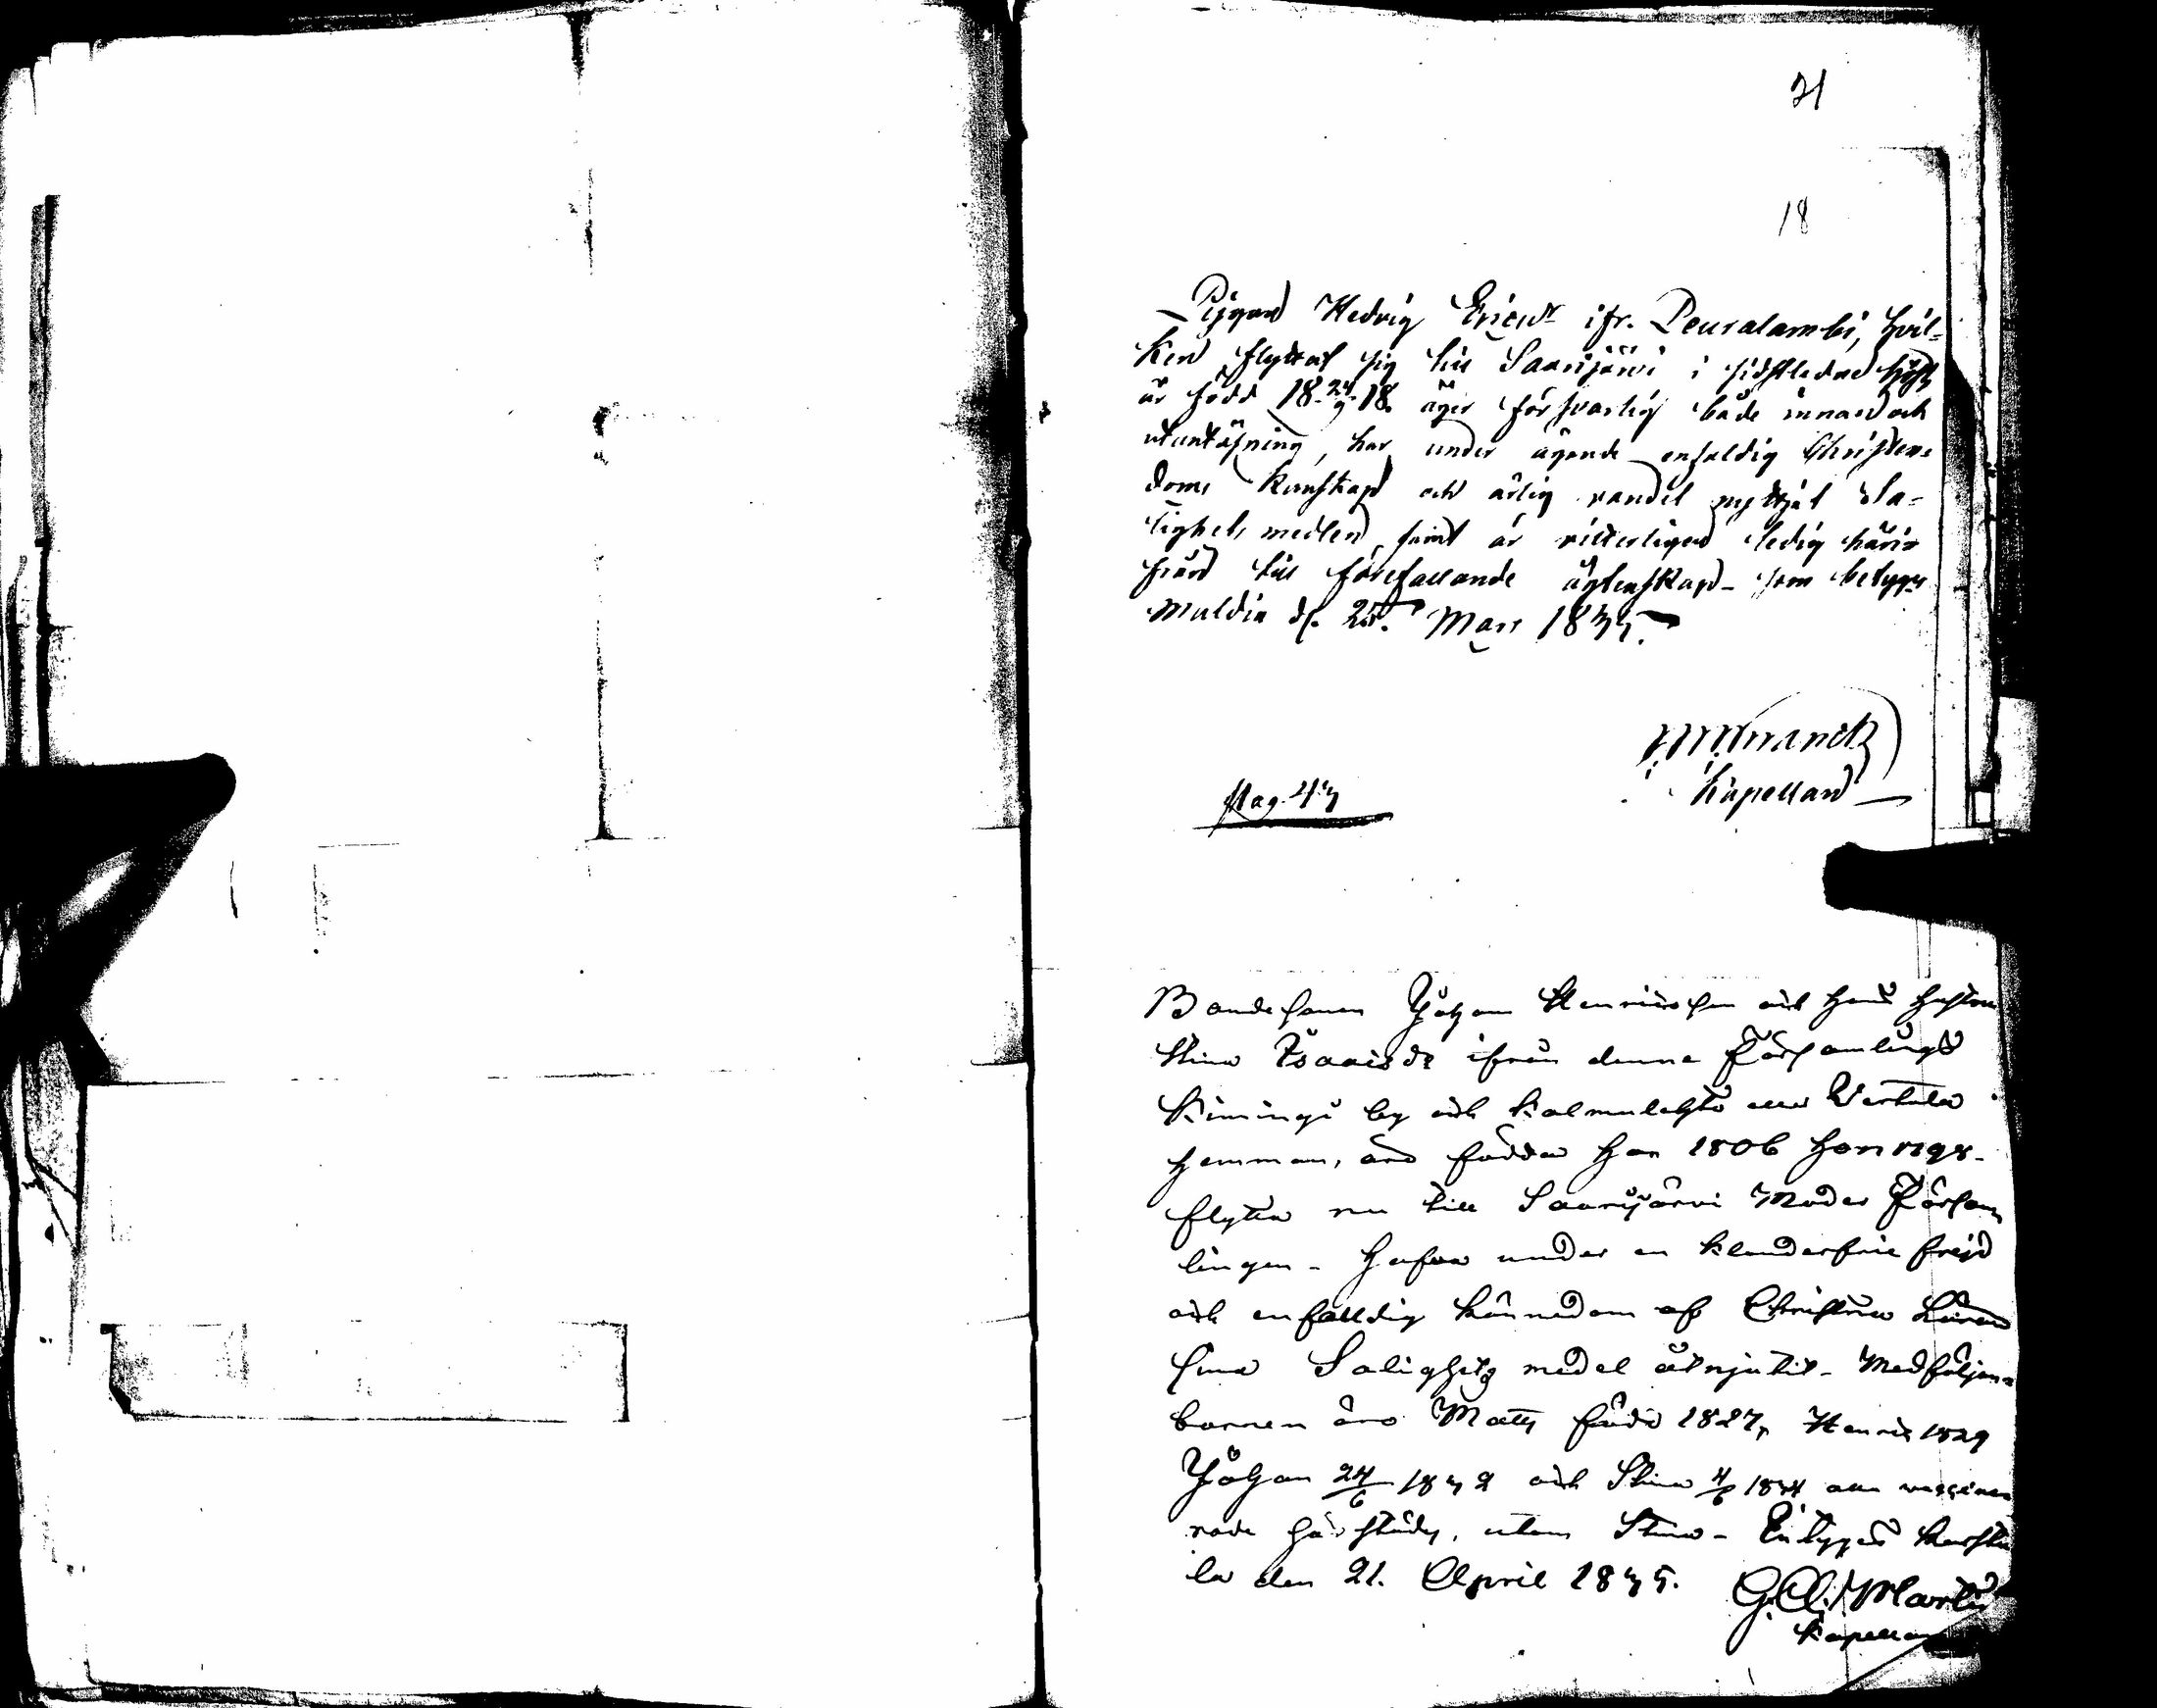 21
18
Pigan Hedvig Ericsdr ifr. Peuralambi, hvil-
ken flyttat sig till Saarijärvi i sidstledne höst,
är född 18 24/9 18. äger försvarlig både innan och
utanläsning, har under ägande enfaldig Christen-
doms kunskap och ärlig vandel nyttjat Sa-
lighets medlen, samt är vitterligen ledig häri-
från till förefallande äktenskap - som betygas
Multia d. 25. Mars 1835.
Kapellan
Pag. 43
Bondesonen Johan Henricsson och hans hustru
Stina Isaacsdr ifrån denna Församlings
Kimingi by och Kalmulahto eller
hemman, äro födda han 1806 hon 1798.
flytta nu till Saarijärvi Moder Försam
lingen - hafva under en klanderfri frejd
och enfalldig kännedom af Christna Läran
sina Salighets medel åtnjutit - Medföljan-
barnen äro Matts född 1827, Henric 1829
Johan 24/6 1832 och Stina 4/6 1834 alla vaccine
rade härstädes, utom Stina - Betygas Karstu
la den 21. April 1835.
Kapellan